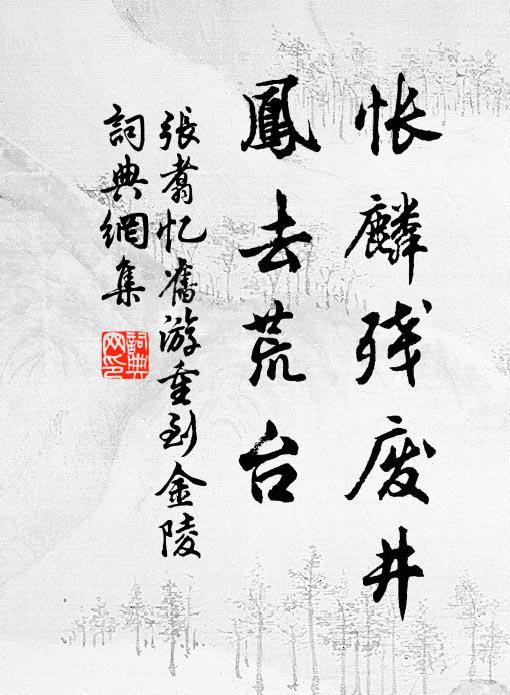 怅麟残废井
鳳去荒台
張翥忆舊游重到金陵
詞典網集
詞典網印